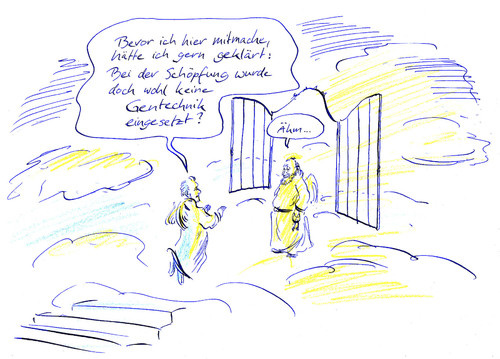 Bevor ich hier mitmache,
hätte ich gern geklärt:
Bei der Schöpfung wurde
doch wohl keine
Gentechnik
eingesetzt?
Ähm...